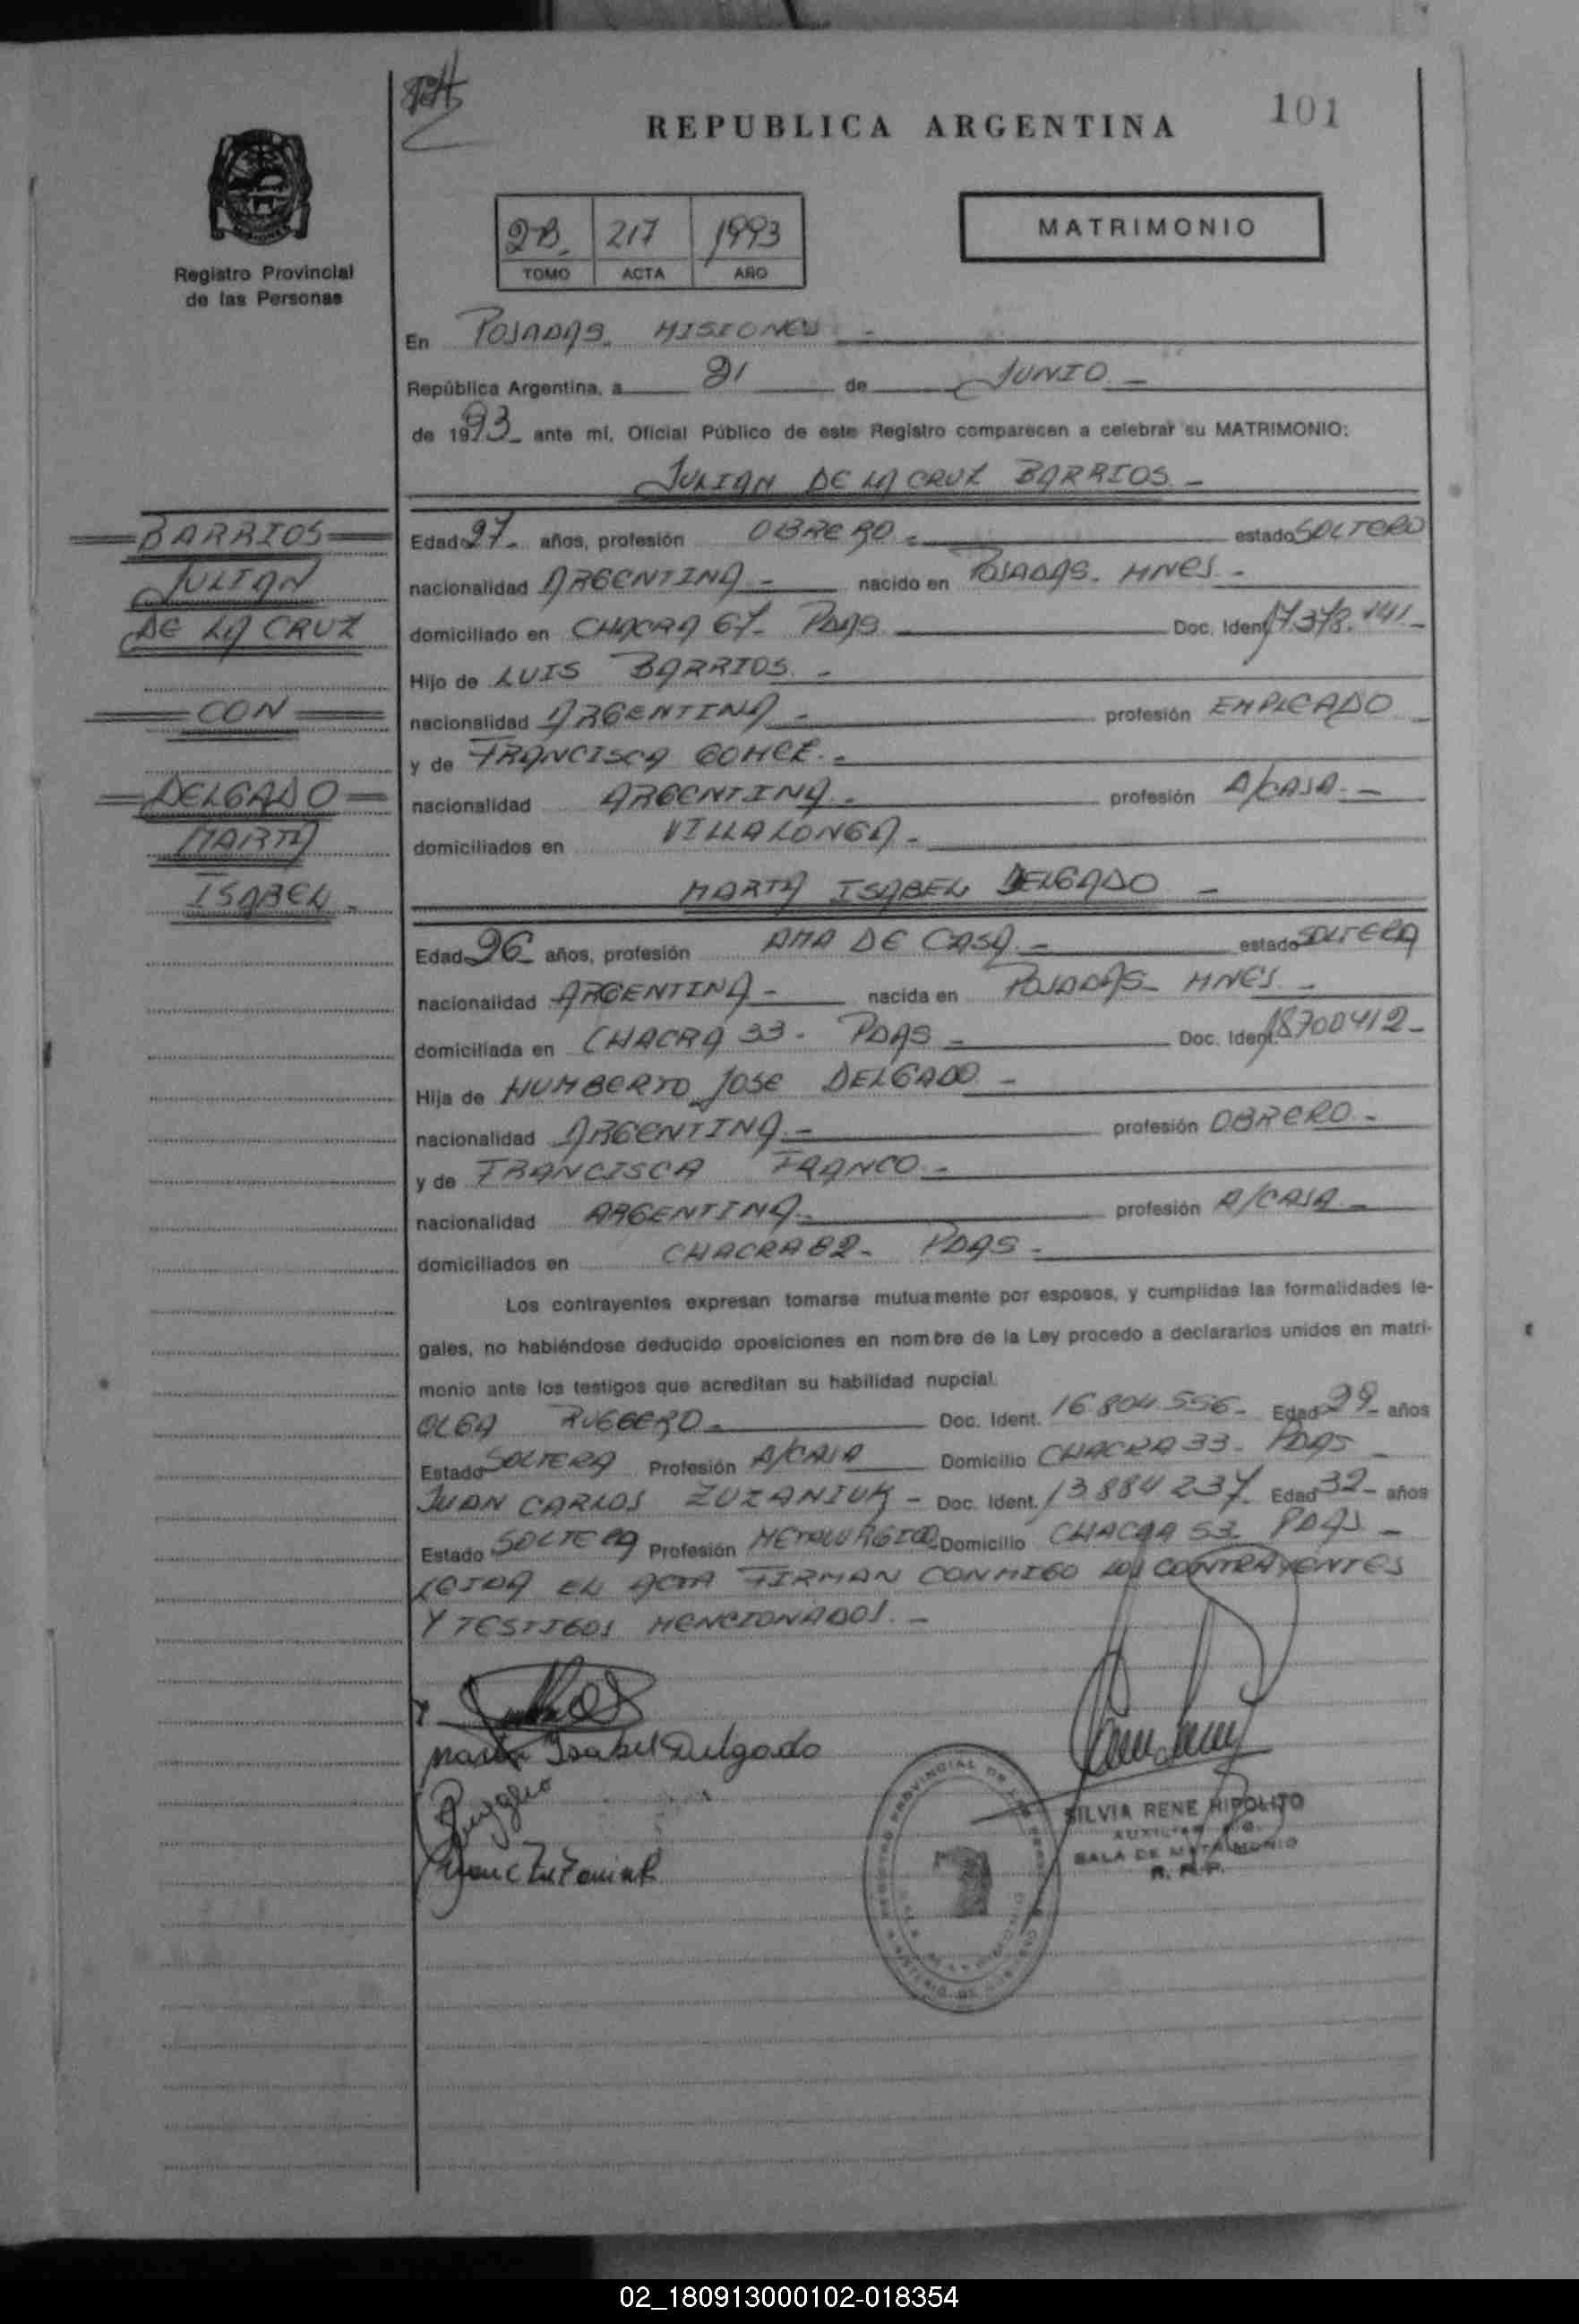 101
REPUBLICA ARGENTINA
Registro Provincial
de las Personas
2B 217 1993
TOMO ACTA AÑO
MATRIMONIO
En POSADAS. MISIONES -
República Argentina, a 21 de JUNIO -
de 1993 - ante mí, Oficial Público de este Registro comparecen a celebrar su MATRIMONIO:
JULIAN DE LA CRUZ BARRIOS -
BARRIOS
JULIAN
DE LA CRUZ
CON
DELGADO
MARTA
ISABEL -
Edad 27 - años, profesión OBRERO - estado SOLTERO
nacionalidad ARGENTINA - nacido en POSADAS - MNES -
domiciliado en CHACRA 67 - PDAS Doc. Ident. 17.378.141 -
Hijo de LUIS BARRIOS -
nacionalidad ARGENTINA - profesión EMPLEADO -
y de FRANCISCA GOMEZ -
nacionalidad ARGENTINA - profesión A/CASA -
domiciliados en VILLA LONGA -
MARTA ISABEL DELGADO -
Edad 26 - años, profesión AMA DE CASA - estado SOLTERA
nacionalidad ARGENTINA - nacida en POSADAS - MNES -
domiciliada en CHACRA 33 - PDAS - Doc. Ident. 18700412 -
Hija de HUMBERTO JOSE DELGADO -
nacionalidad ARGENTINA - profesión OBRERO -
y de FRANCISCA FRANCO -
nacionalidad ARGENTINA - profesión A/CASA -
domiciliados en CHACRA 82 - PDAS -
Los contrayentes expresan tomarse mutuamente por esposos, y cumplidas las formalidades le-
gales, no habiéndose deducido oposiciones en nombre de la Ley procedo a declararlos unidos en matri-
monio ante los testigos que acreditan su habilidad nupcial.
OLGA RUGGERO - Doc. Ident. 16.804.556 - Edad 29 - años
Estado SOLTERA Profesión A/CASA Domicilio CHACRA 33 - PDAS -
JUAN CARLOS ZUZANIUK - Doc. Ident. 13.884.237 - Edad 32 - años
Estado SOLTERA Profesión METALURGICO - Domicilio CHACRA 53 PDAS -
LEIDA EL ACTA FIRMAN CONMIGO LOS CONTRAYENTES
Y TESTIGOS MENCIONADOS. -
Marta Isabel Delgado
SILVIA RENE HIPOLITO
SALA DE MATRIMONIO
R. P. P.
02_180913000102-018354